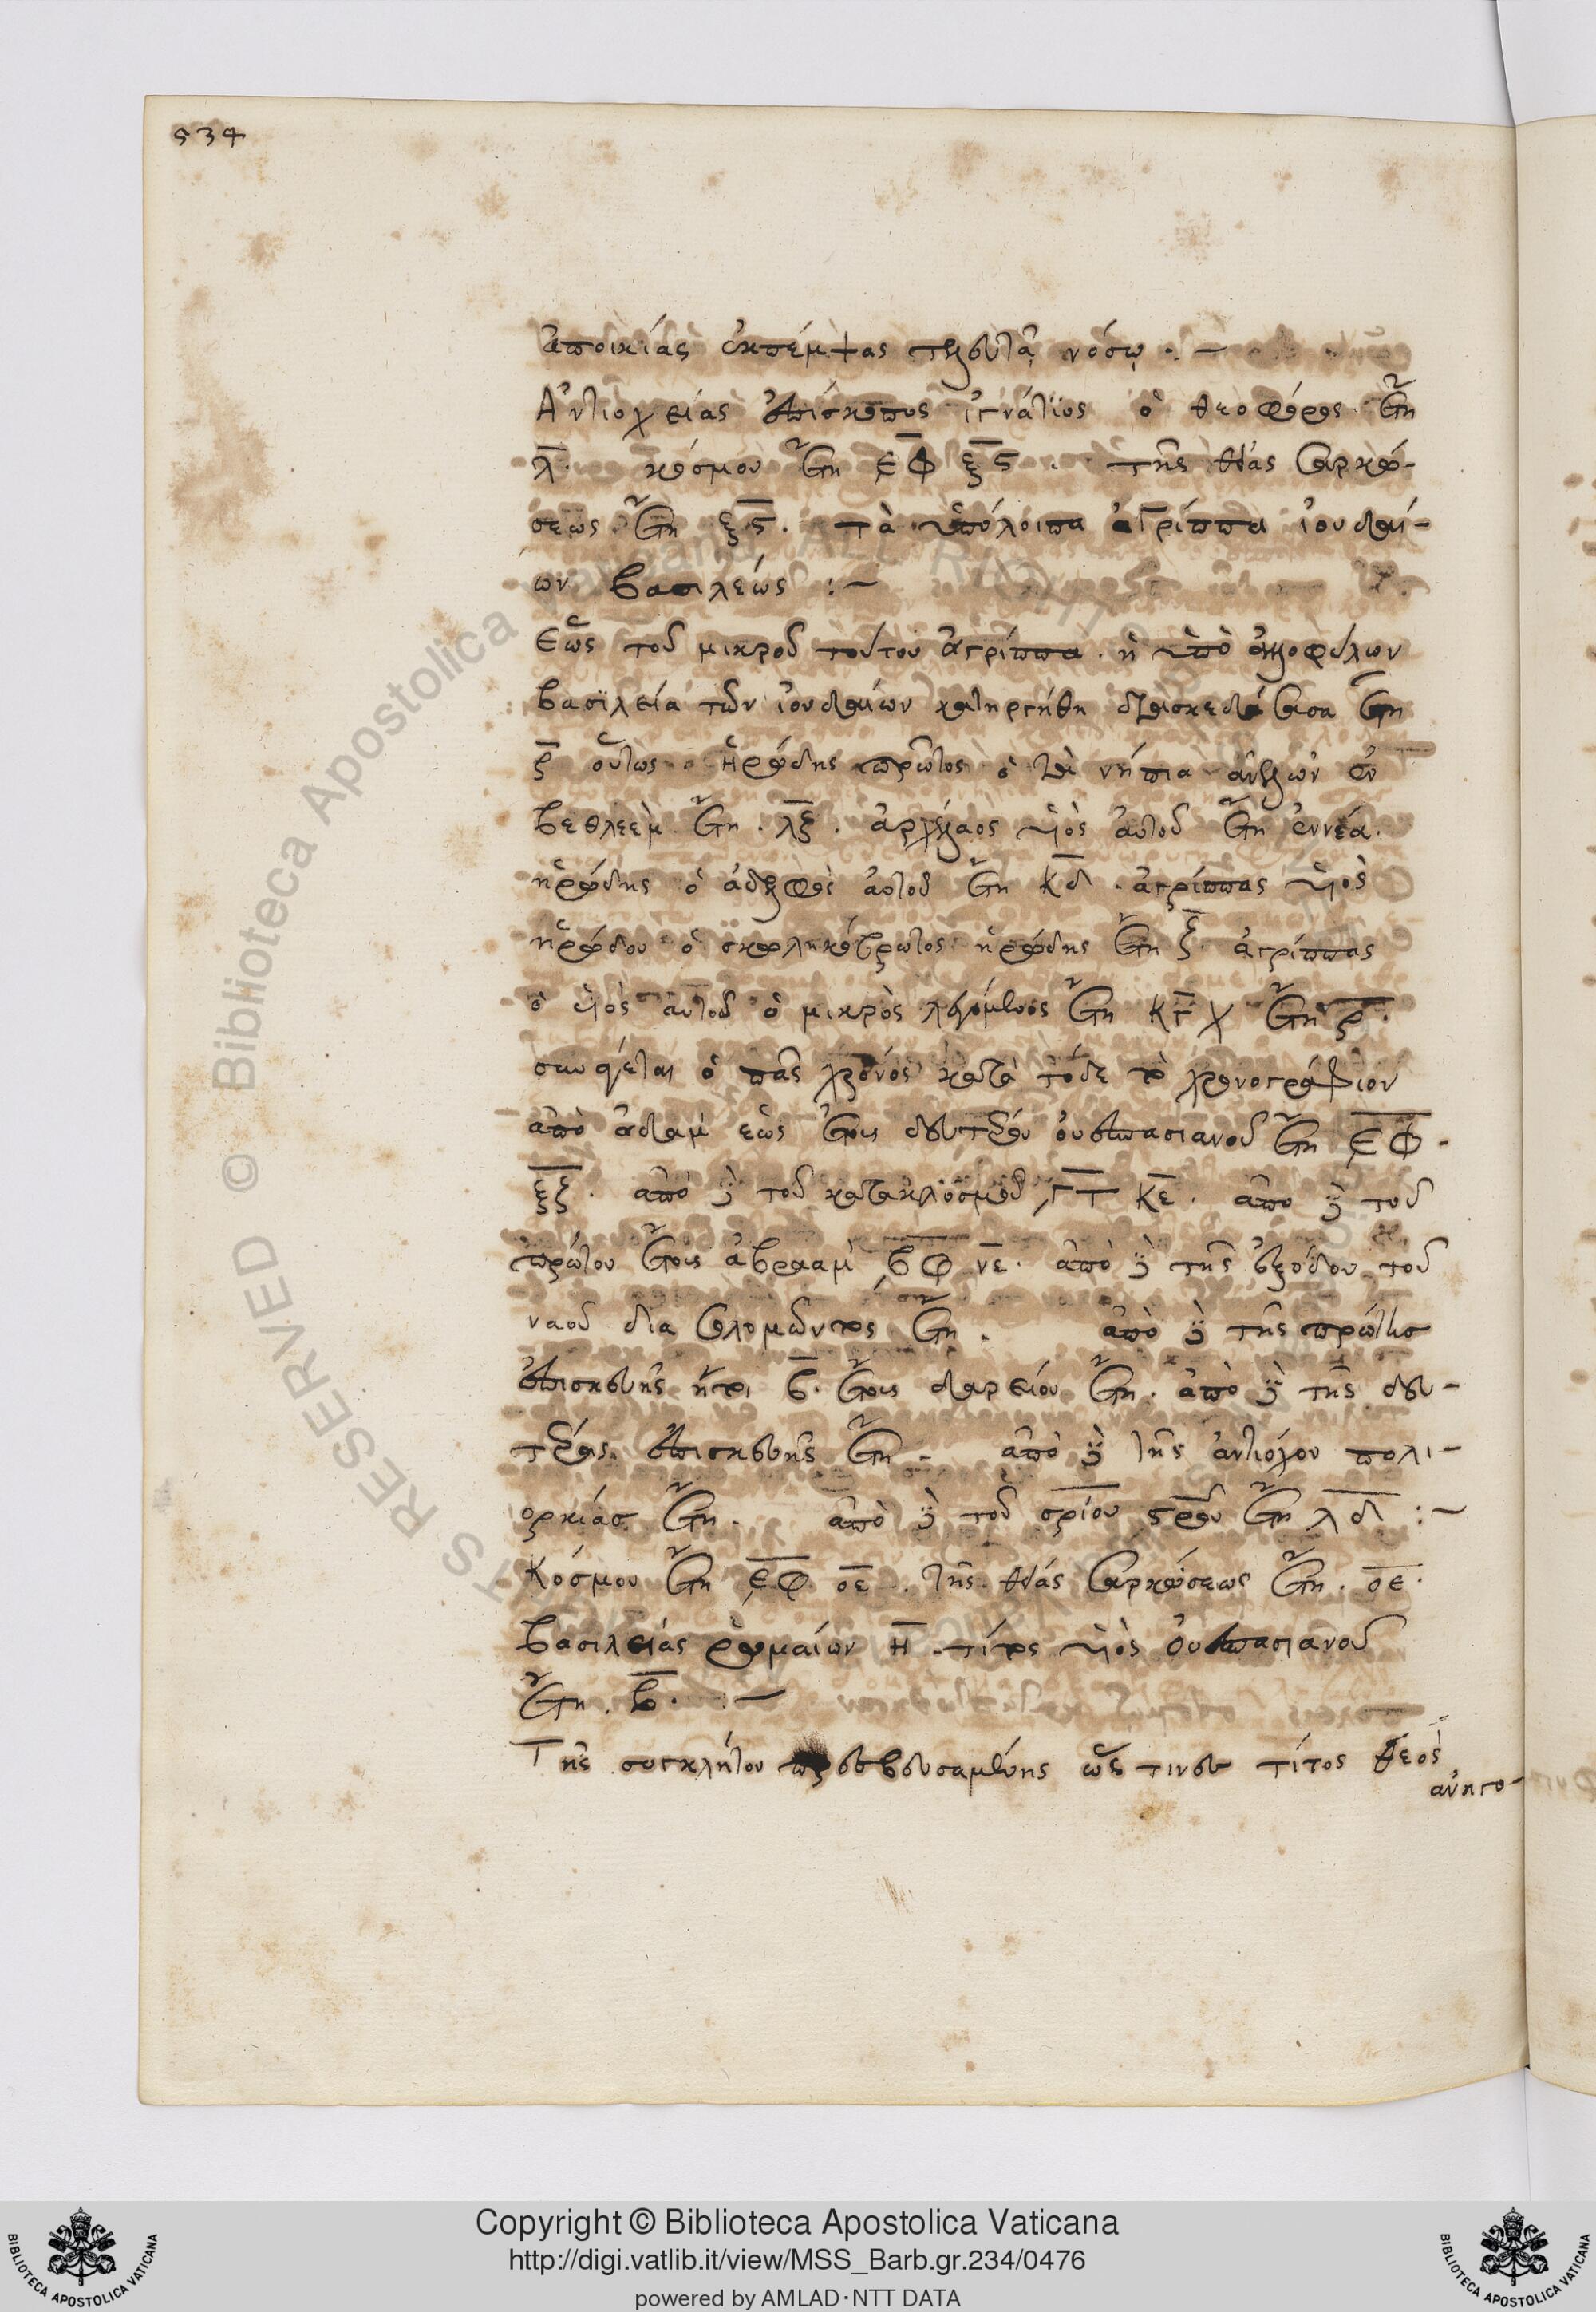 534
ἀποικίας ἐκπέμψας τελευτᾷ νόσῳ :~
Ἀντιοχείας ἐπίσκοπος ἰγνάτϊος ὁ θεοφόρος ἔτη
λ̅. κόσμου ἔτη ͵ε̅φ̅ ξ̅ϛ̅. τῆς θείας σαρκώ-
σεως ἔτη ξ̅ϛ̅. τὰ ὑπόλοιπα ἀγρίππα ἰουδαί-
ων βασιλεώς :~
Εὧς τοῦ μικροῦ τούτου ἀγρίππα. ἡ ὑπὸ ἀλλοφύλων
βασϊλεία τῶν ἰουδαίων κατηργήθη διαρκέσασα ἔτη
ρ̅ οὕτως ἡρώδης πρῶτος ὁ τὰ νήπια ἀνελὼν ἐν
βεθλεεμ ἔτη . λ̅ζ̅ . ἀρχέλαος υἱὸς αὐτοῦ ἔτη ἐννέα.
ἡρώδης ὁ ἀδελφὸς αὐτοῦ ἔτη κ̅δ̅ . ἀγρίππας υἱὸς
ἡρώδου ὁ σκωληκόβρωτος ἡρώδης ἔτη ζ̅. ἀγρίππας
ὁ υἱὸς αὐτοῦ ὁ μικρὸς λεγόμενος ἔτη κγ̅ ἔτη ρ̅.
συνάγεται ὁ πᾶς χρόνος κατὰ τόδε τὸ χρονογράφιον
ἀπὸ ἀδαμ ἕως ἔτους δευτέρου οὐεσπασιανοῦ ἔτη ͵ε̅φ̅
ξ̅ζ̅. ἀπὸ δὲ τοῦ κατακλυσμοῦ ͵γ̅τ̅ κε̅. ἀπὸ δὲ τοῦ
πρώτου ἔτους ἀβρααμ ͵β̅φ̅ νε̅. ἀπὸ δὲ τῆς ἐξόδου τοῦ
ναοῦ δια σολομῶντος ἔτη . ἀπὸ δὲ τῆς πρώτης
ἐπισκευῆς ἤτοι β̅. ἔτους δαρείου ἔτη . ἀπὸ δὲ τῆς δευ-
τέρας ἐπισκευῆς ἔτη . ἀπὸ δὲ τῆς ἀντιόχου πολι-
ορκίας ἔτη . ἀπὸ δὲ τοῦ σρίου στρου ἔτη λδ̅ :~
Κόσμου ἔτη ͵ε̅φ̅ οε̅ . τῆς θείας σαρκώσεως ἔτη . οε̅.
βασιλείας ῥωμαίων η̅ . τίτος υἱὸς οὐεσπασιανοῦ
ἔτη . β̅. ~
Τῆς συγκλήτου ψευσαμένης ὥς τινες τίτος θεὸς
ἀνηγο-
Copyright © Biblioteca Apostolica Vaticana
http://digi.vatlib.it/view/MSS_Barb.gr.234/0476
powered by AMLAD·NTT DATA